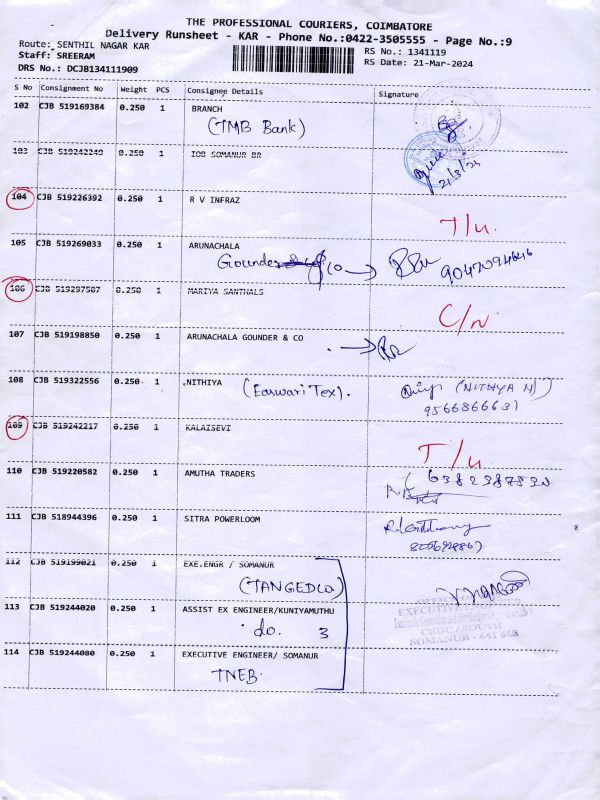 THE PROFESSIONAL COURIERS, COIMBATORE
Delivery Runsheet - KAR - Phone No.:0422-3505555 - Page No.:9
Route: SENTHIL NAGAR KAR
RS No.: 1341119
Staff: SREERAM
RS Date: 21-Mar-2024
DRS No.: DCJB134111909
S No Consignment No Weight PCS Consignee Details Signature
102 CJB 519169384 0.250 1 BRANCH
(TMB Bank)
103 CJB 519242249 0.250 1 IOB SOMANUR BR
21/3/24
104 CJB 519226392 0.250 1 R V INFRAZ
T/u.
105 CJB 519269033 0.250 1 ARUNACHALA
Gounder & Co
106 CJB 519297587 0.250 1 MARIYA SANTHALS
C/N
107 CJB 519198850 0.250 1 ARUNACHALA GOUNDER & CO
108 CJB 519322556 0.250 1 NITHIYA (Easwari Tex). (NITHYA N)
9566866631
109 CJB 519242217 0.250 1 KALAISEVI
T/u
110 CJB 519220582 0.250 1 AMUTHA TRADERS
111 CJB 518944396 0.250 1 SITRA POWERLOOM
112 CJB 519199021 0.250 1 EXE.ENGR / SOMANUR
(TANGEDCO)
113 CJB 519244020 0.250 1 ASSIST EX ENGINEER/KUNIYAMUTHU
do. 3
EXECUTIVE
SOMANUR - 641 668
114 CJB 519244080 0.250 1 EXECUTIVE ENGINEER/ SOMANUR
TNEB